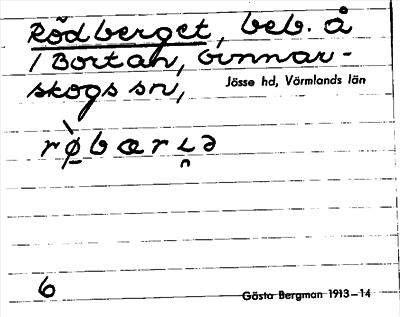 Rödberget, beb. å
1 Bortan, Gunnar-
skogs sn,
Jösse hd, Värmlands län
6
Gösta Bergman 1913–14